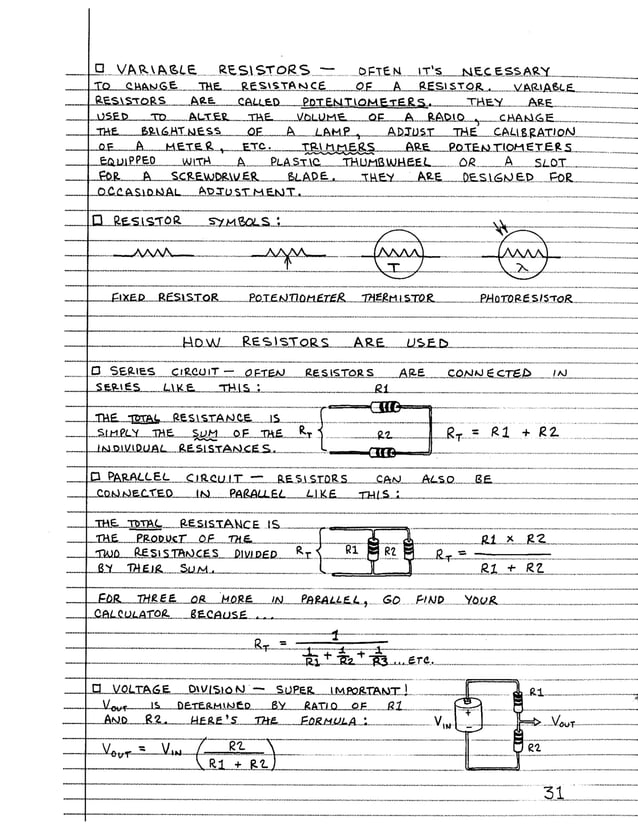 □ VARIABLE RESISTORS — OFTEN IT'S NECESSARY
TO CHANGE THE RESISTANCE OF A RESISTOR. VARIABLE
RESISTORS ARE CALLED POTENTIOMETERS. THEY ARE
USED TO ALTER THE VOLUME OF A RADIO, CHANGE
THE BRIGHTNESS OF A LAMP, ADJUST THE CALIBRATION
OF A METER, ETC. TRIMMERS ARE POTENTIOMETERS
EQUIPPED WITH A PLASTIC THUMBWHEEL OR A SLOT
FOR A SCREWDRIVER BLADE. THEY ARE DESIGNED FOR
OCCASIONAL ADJUSTMENT.
□ RESISTOR SYMBOLS:
T λ
FIXED RESISTOR POTENTIOMETER THERMISTOR PHOTORESISTOR
HOW RESISTORS ARE USED
□ SERIES CIRCUIT — OFTEN RESISTORS ARE CONNECTED IN
SERIES LIKE THIS:
R1
THE TOTAL RESISTANCE IS
SIMPLY THE SUM OF THE
INDIVIDUAL RESISTANCES.
RT
R2
RT = R1 + R2
□ PARALLEL CIRCUIT — RESISTORS CAN ALSO BE
CONNECTED IN PARALLEL LIKE THIS:
THE TOTAL RESISTANCE IS
THE PRODUCT OF THE
TWO RESISTANCES DIVIDED
BY THEIR SUM.
RT R1 R2
RT = R1 × R2 / R1 + R2
FOR THREE OR MORE IN PARALLEL, GO FIND YOUR
CALCULATOR BECAUSE ...
RT = 1 / 1/R1 + 1/R2 + 1/R3 ... ETC.
□ VOLTAGE DIVISION — SUPER IMPORTANT!
VOUT IS DETERMINED BY RATIO OF R1
AND R2. HERE'S THE FORMULA:
VOUT = VIN (R2 / R1 + R2)
R1
VIN + − VOUT
R2
31